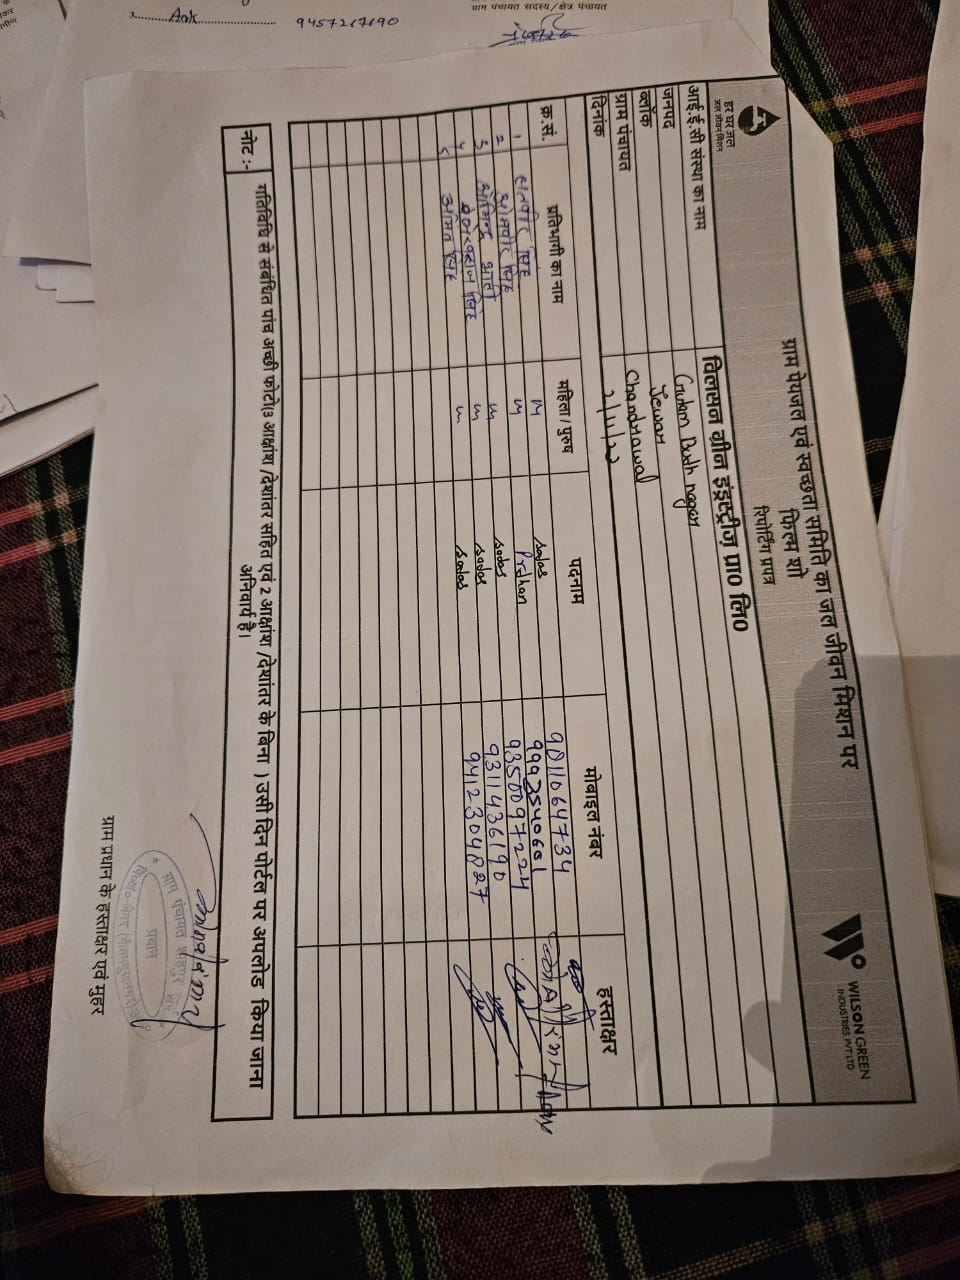 हर घर जल
जल जीवन मिशन
ग्राम पेयजल एवं स्वच्छता समिति का जल जीवन मिशन पर
फिल्म शो
रिपोर्टिंग प्रपत्र
WILSON GREEN
INDUSTRIES PVT LTD
आई.ई.सी संस्था का नाम विलसन ग्रीन इंड्रस्ट्रीज प्रा0 लि0
जनपद Gutam Budh nagar
ब्लॉक Jewar
ग्राम पंचायत Chandrawal
दिनांक 2/11/22
क्र.सं. प्रतिभागी का नाम महिला/पुरुष पदनाम मोबाइल नंबर हस्ताक्षर
1 सिंह M sadas 9811064734
2 सिंह M Prdhan 9992540601
3 M sadas 9350097224
4 सिंह M sadas 9311436190
5 अमित सिंह M sadas 9412304827
नोट :- गतिविधि से संबंधित पांच अच्छी फोटो(3 आक्षांश /देशांतर सहित एवं 2 आक्षांश /देशांतर के बिना ) उसी दिन पोर्टल पर अपलोड किया जाना
अनिवार्य है।
प्रधान
ग्राम पंचायत
ग्राम प्रधान के हस्ताक्षर एवं मुहर
3. Aak 9457267690
ग्राम पंचायत सदस्य/क्षेत्र पंचायत